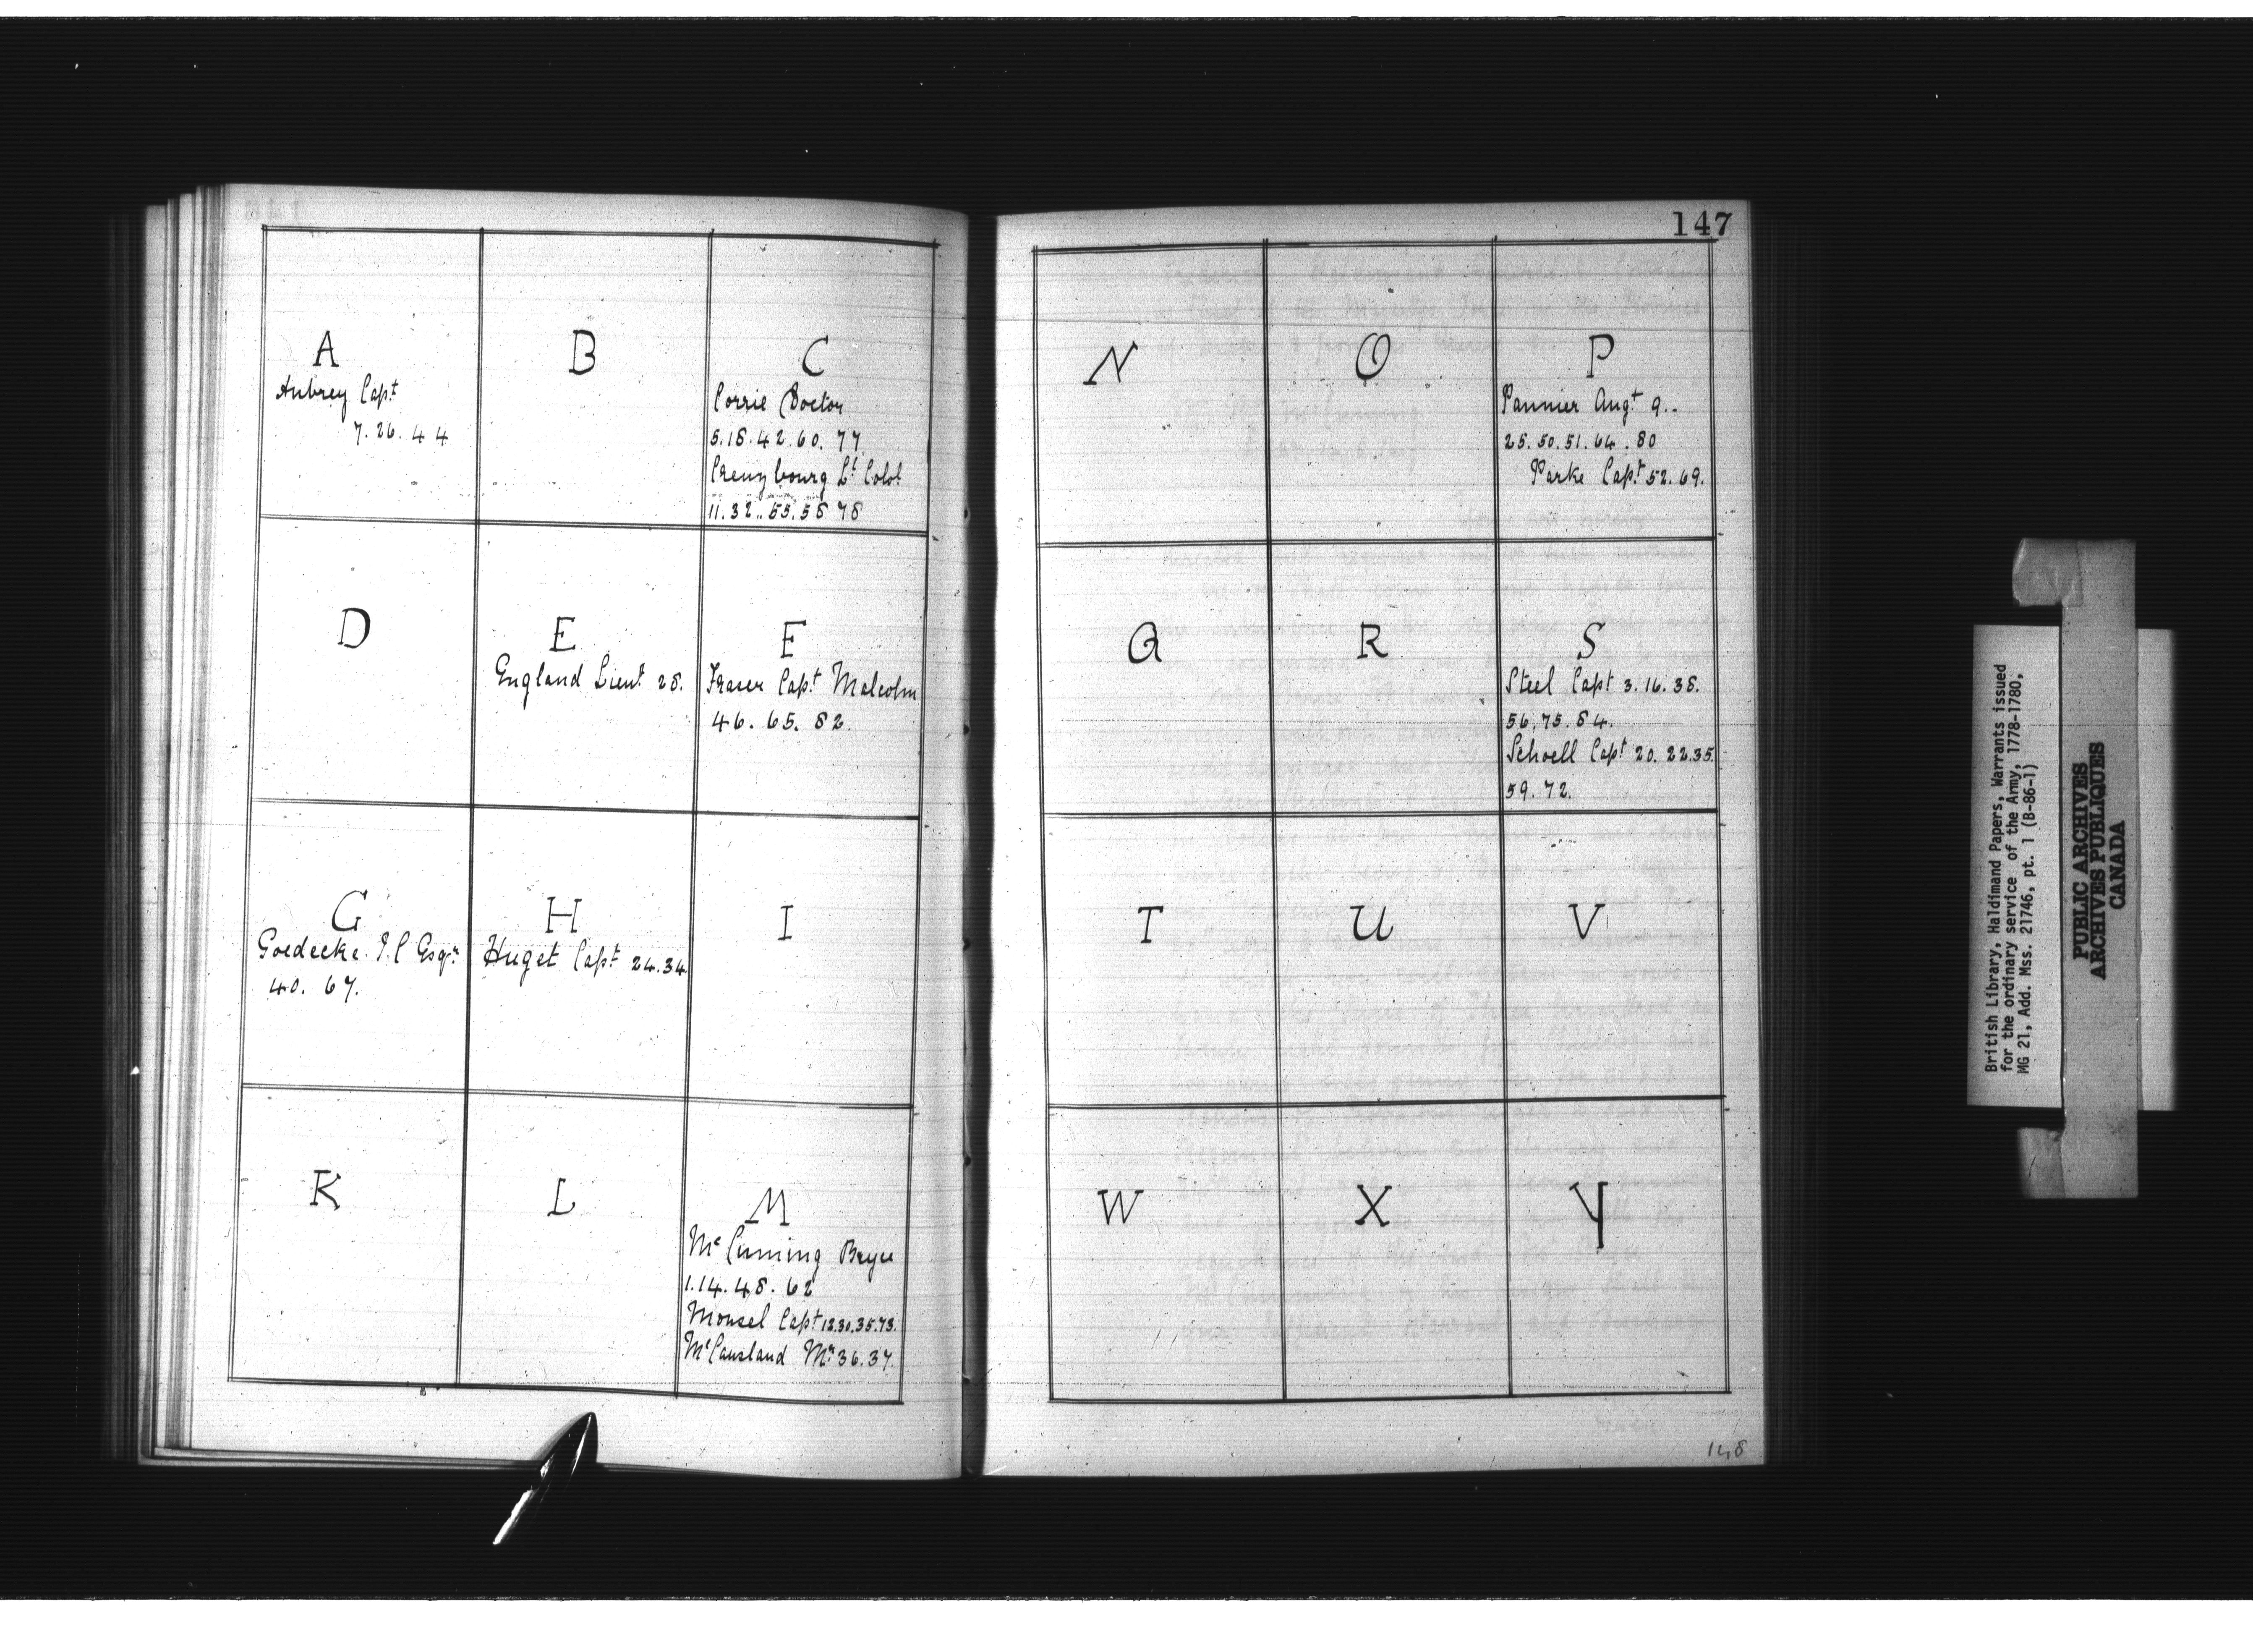 A
Aubrey Capt
7. 26. 44
B
C
Corrie Doctor
5. 18. 42. 60. 77.
Creuzbourg Lt Colol
11. 32.. 55. 58 78
D
E
England Lieut 28.
F
Fraser Capt Malcolm
46. 65. 82.
G
Goedecke Esqr
40. 67.
H
Huget Capt 24. 34
I
K
L
M
Mc Cuming Bryce
1. 14. 48. 62
Monsel Capt 12. 30. 35. 73.
McCausland Mr 36. 37.
147
N
O
P
Pannier Augt 9..
25. 50. 51. 64. 80
Parke Capt 52. 69.
Q
R
S
Steel Capt 3. 16. 38.
56. 75. 84.
Schoell Capt 20. 22. 35.
59. 72.
T
U
V
W
X
Y
148
British Library, Haldimand Papers, Warrants issued
for the ordinary service of the Army, 1778-1780,
MG 21, Add. Mss. 21746, pt. 1 (B-86-1)
PUBLIC ARCHIVES
ARCHIVES PUBLIQUES
CANADA